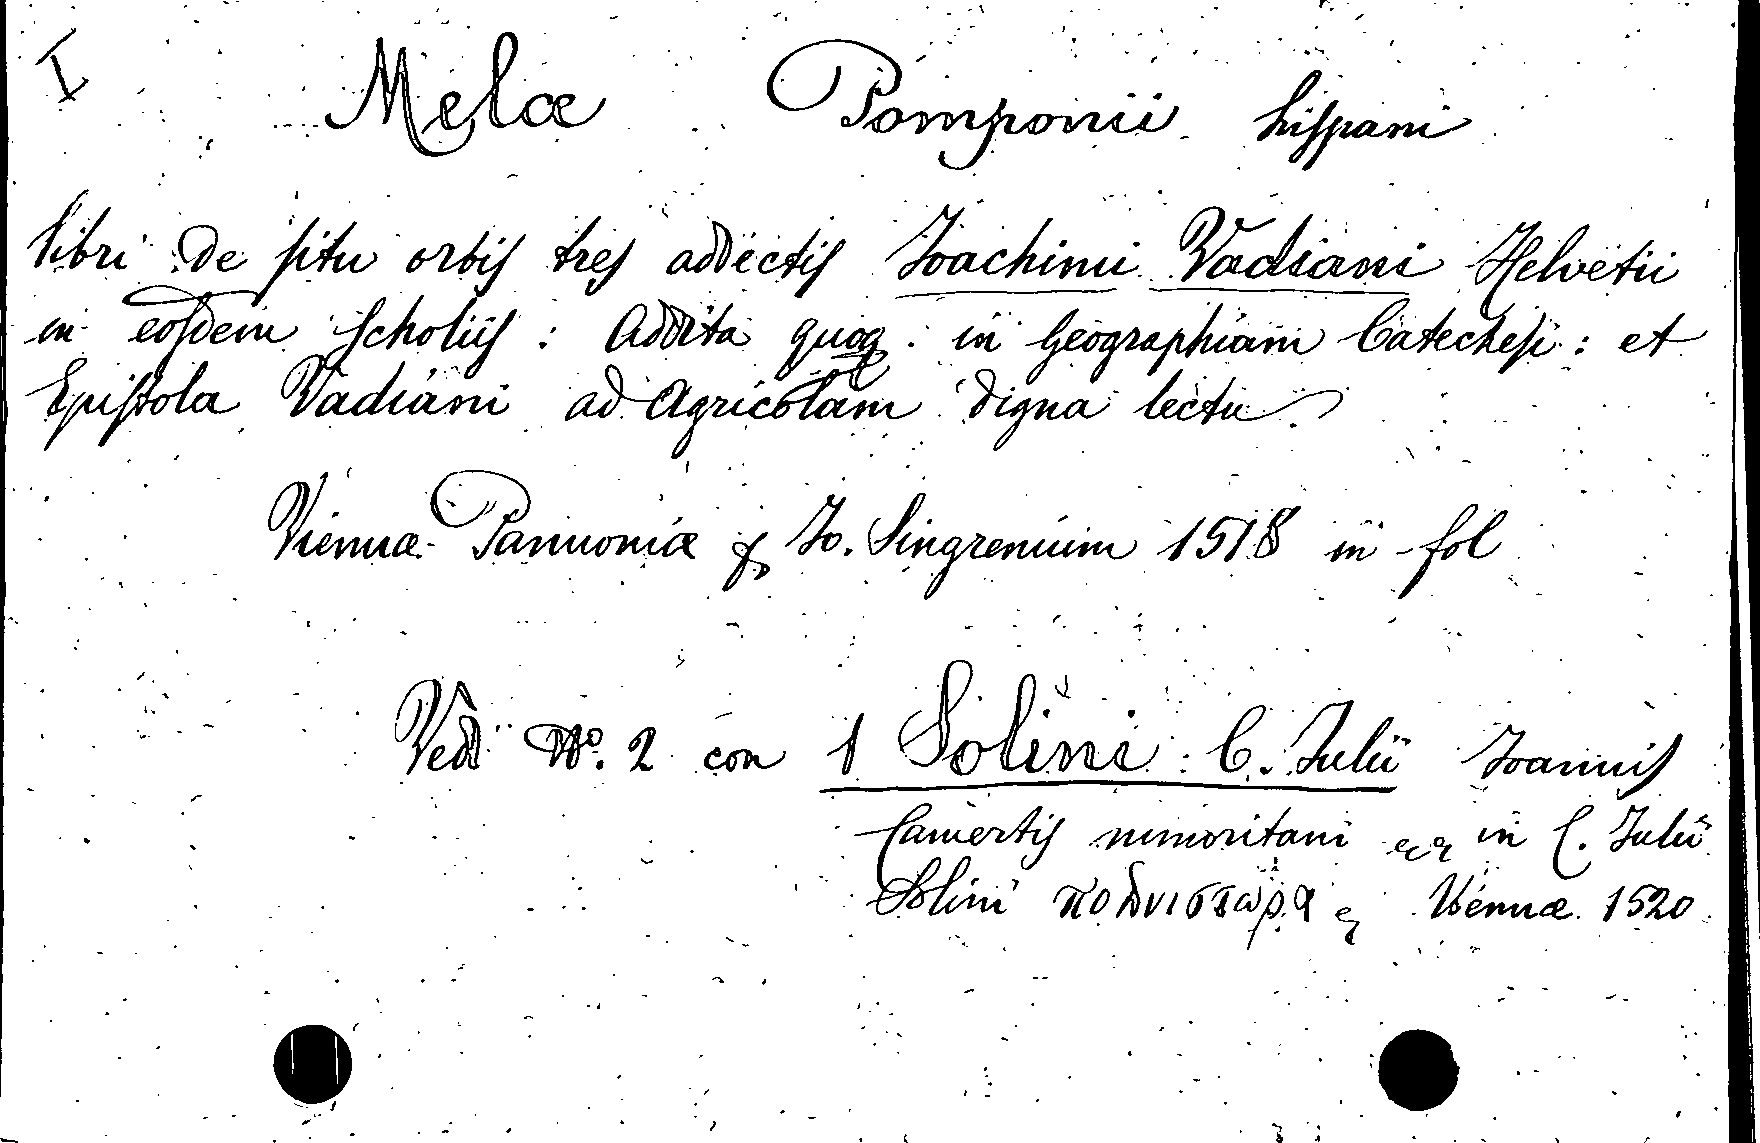 I Melæ Pomponii hispani
libri de situ orbis tres addectis Joachimi Vadiani Helvetii
in eosdem Scholiis : Addita quoq. in Geographiam Catechesi : et
Epistola Vadiani ad Agricolam digna lectu.
Viennæ Pannoniæ p Jo. Singrenium 1518 in fol
Vedi Nº. 2 con 1 Solini C. Julii Joannis
Camertis minoritani in C. Julii
Solini πολυιστωρα Viennæ 1520